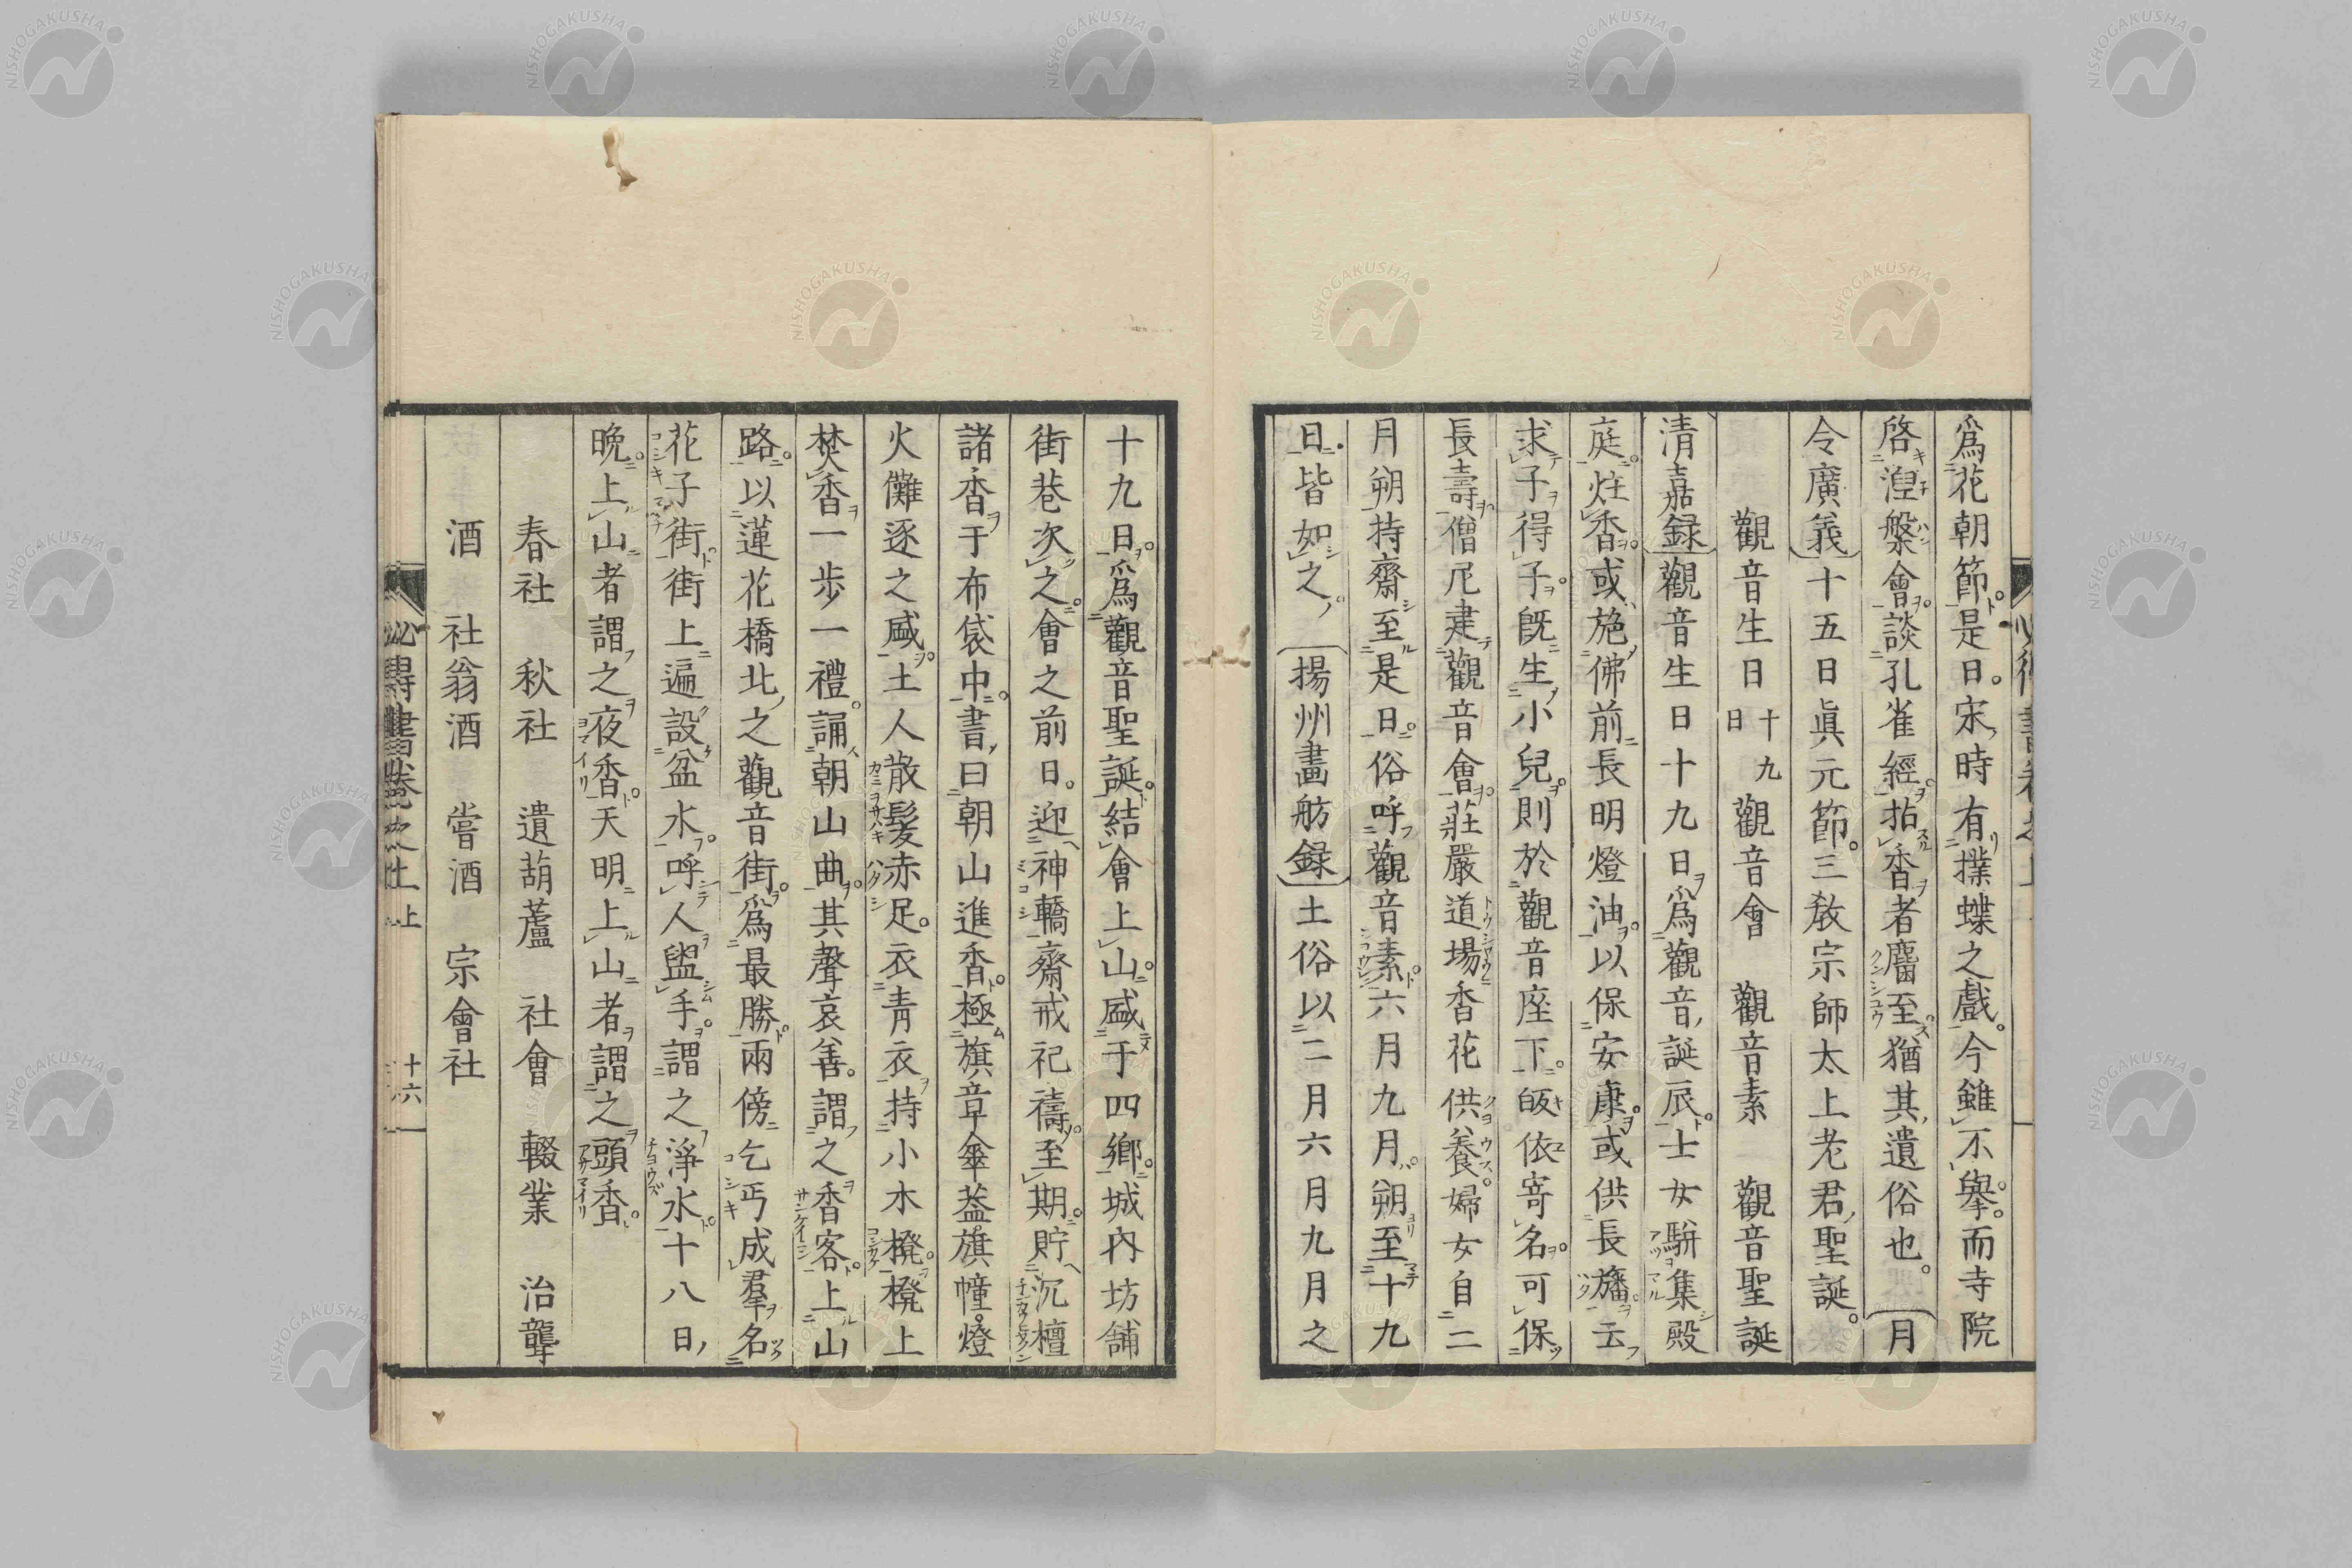 爲花朝節是日宋時有撲蝶之戲今雖不擧而寺院
啓涅槃會談孔雀經拈香者麕至猶其遺俗也月
令廣義十五日眞元節三教宗師太上老君聖誕
觀音生日十九日 觀音會 觀音素 觀音聖誕
清嘉録觀音生日十九日爲觀音誕辰士女駢集殿
庭炷香或施佛前長明燈油以保安康或供長旛云
求子得子既生小兒則於觀音座下皈依寄名可保
長壽僧尼建觀音會莊嚴道場香花供養婦女自二
月朔持齋至是日俗呼觀音素六月九月朔至十九
日皆如之揚州畫舫録土俗以二月六月九月之
十九日爲觀音聖誕結會上山盛于四鄕城內坊舗
街巷次之會之前日迎神轎齋戒祀禱至期貯沉檀
諸香于布袋中書曰朝山進香極旗章傘葢旗幢燈
火儺逐之盛土人散髮赤足衣青衣持小木櫈櫈上
焚香一步一禮誦朝山曲其聲哀善謂之香客上山
路以蓮花橋北之觀音街爲最勝兩傍乞丐成羣名
花子街街上遍設盆水呼人盥手謂之淨水十八日
晩上山者謂之夜香天明上山者謂之頭香
春社 秋社 遺葫蘆 社會 輟業 治聾
酒 社翁酒 嘗酒 宗會社
卷之上 十六
NISHOGAKUSHA